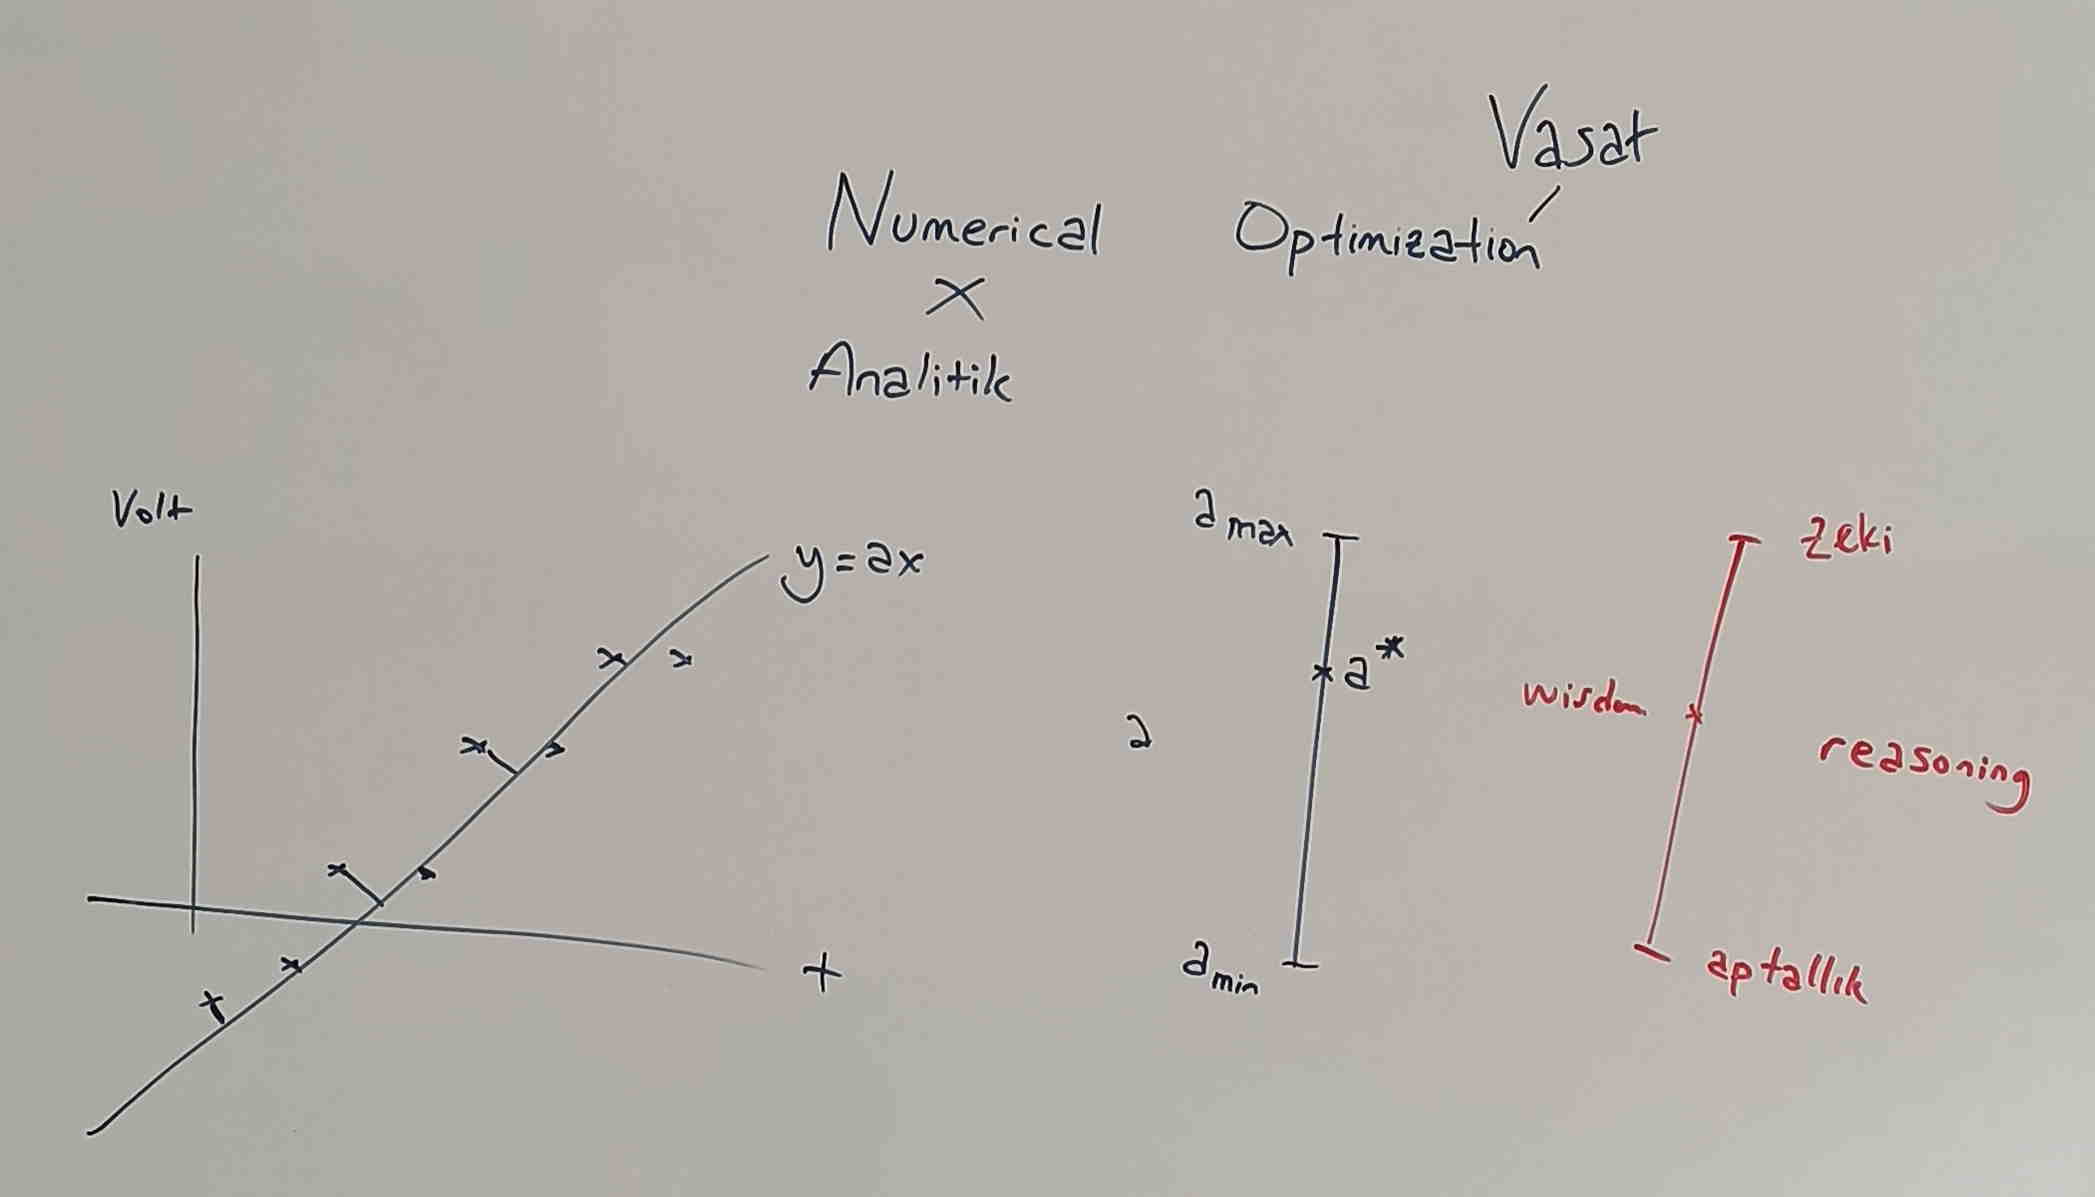 Vasat
Numerical Optimization
X
Analitik
Volt
y = ax
t
a max
a*
a
a min
zeki
wisdom
reasoning
aptallık